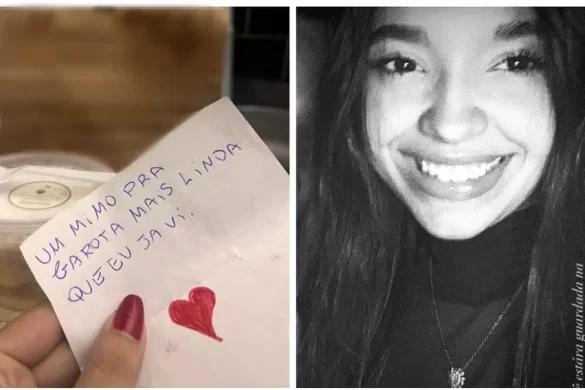 UM MIMO PRA
GAROTA MAIS LINDA
QUE EU JA VI.
guardada na